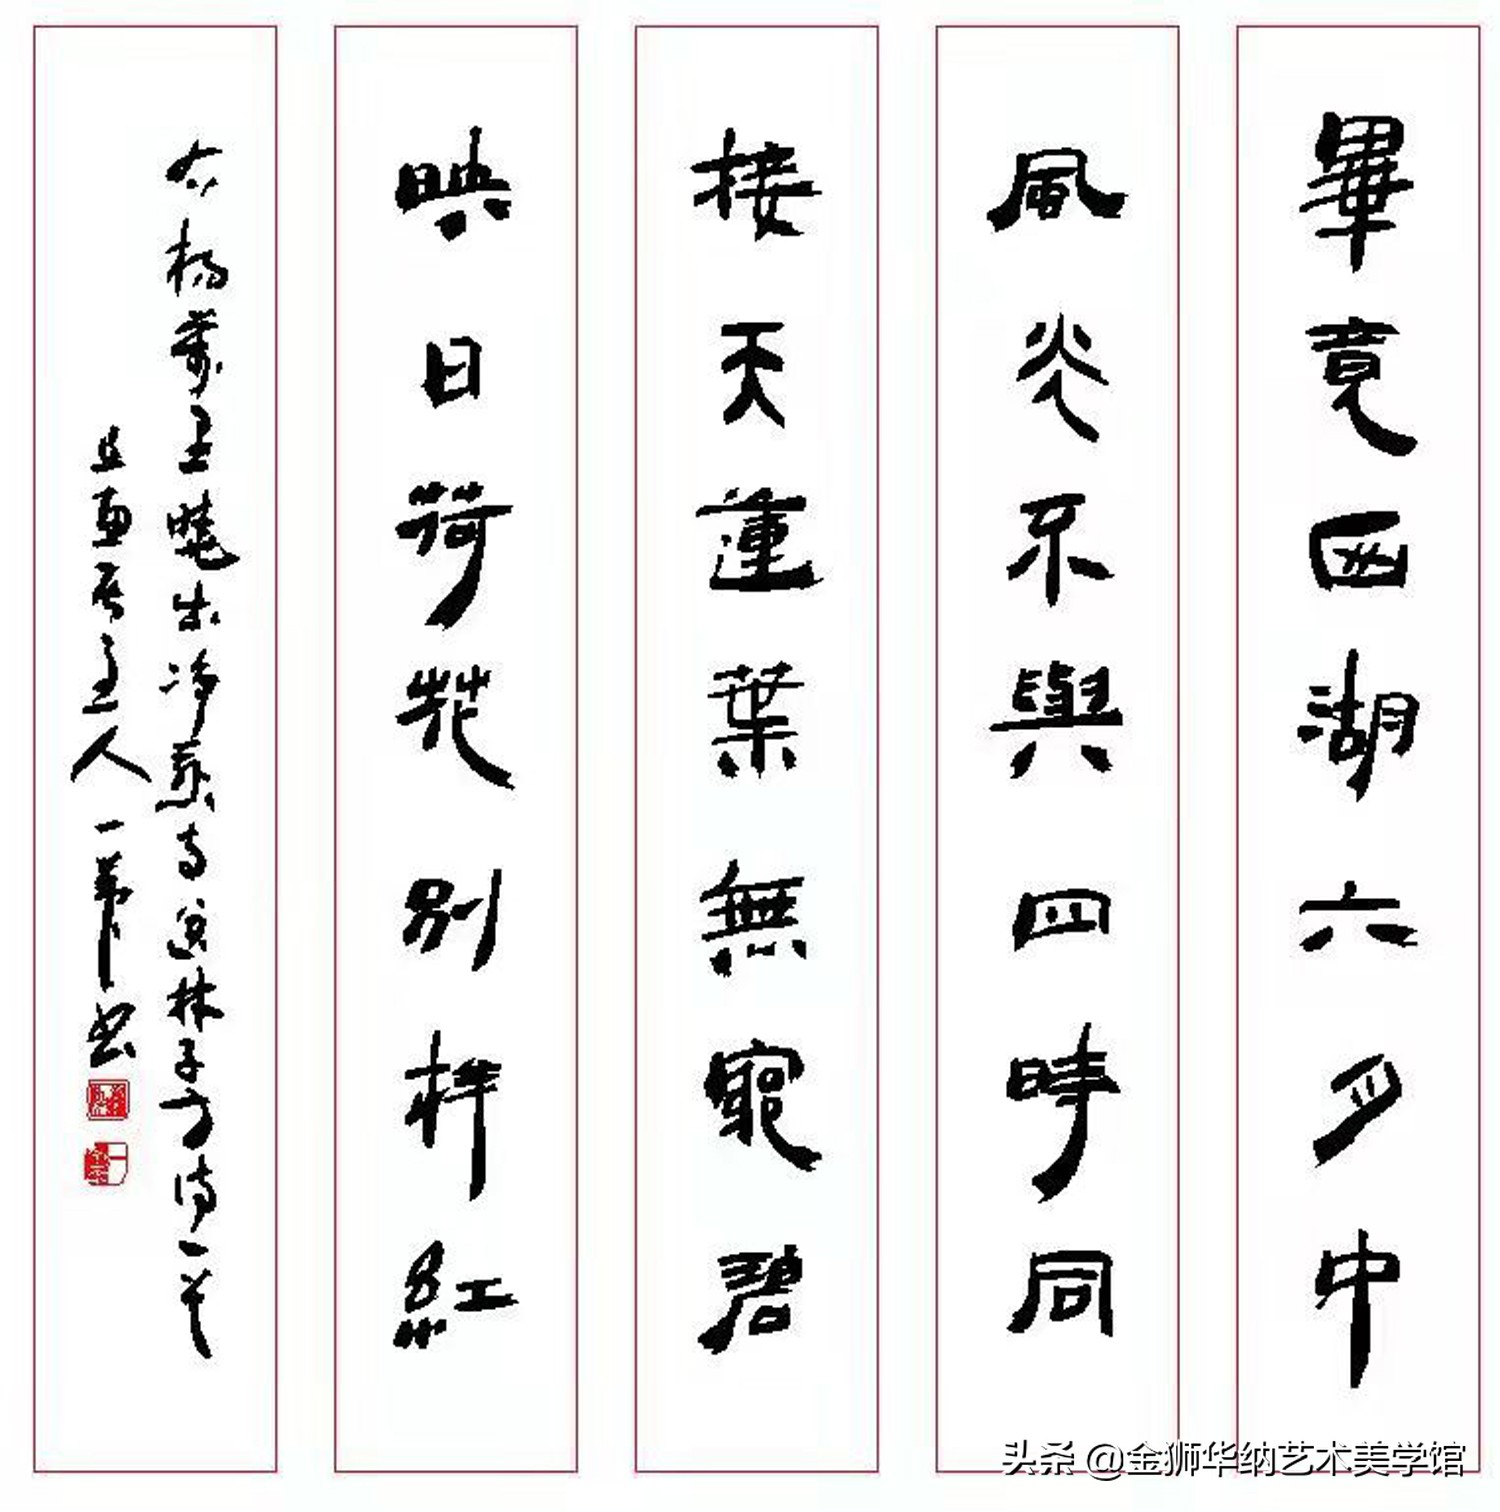 畢竟西湖六月中
風光不與四時同
接天蓮葉無窮碧
映日荷花別样紅
右楊萬里曉出淨慈寺送林子方詩一首
居主人一書
头条 @金狮华纳艺术美学馆